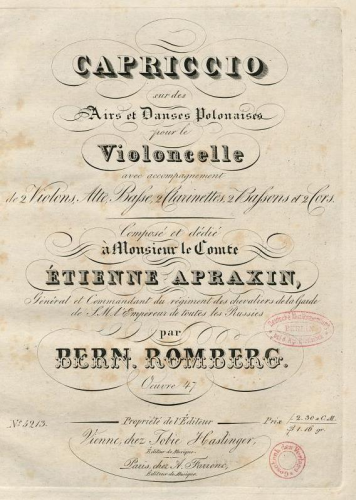 CAPRICCIO
sur des
Airs et Danses Polonaises
pour le
Violoncelle
avec accompagnement
de 2 Violons, Alto, Basse, 2 Clarinettes, 2 Bassons et 2 Cors.
Composé et dédié
à Monsieur le Comte
ÉTIENNE APRAXIN,
Général et Commandant du régiment des chevaliers de la Garde
de S.M. l'Empereur de toutes les Russies
par
BERN. ROMBERG.
Oeuvre 47
No. 5213. Propriété de l'Editeur Prix f 2.30 x C.M.
1.16 gr.
Vienne, chez Tobie Haslinger,
Editeur de Musique.
Paris, chez A. Farrenc,
Editeur de Musique.